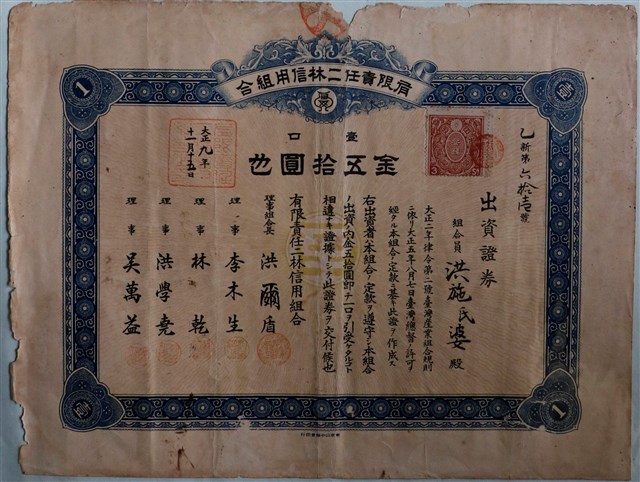 有限責任二林信用組合
壹口
金五拾圓也
乙新第六拾壱號
出資證券
組合員 洪施氏婆殿
大正二年律令第二號臺灣產業組合規則
ニ依リ大正五年八月七日臺灣總督ノ許可
經タル本組合ノ定款ニ基キ此證ヲ作成ス
右出資者ハ本組合ノ定款ヲ遵守シ本組合
ノ出資ノ内金五拾圓即チ一口ヲ引受ケタルコト
相違ナキ證據トシテ此證券ヲ交付候也
有限責任二林信用組合
理事組合長 洪爾盾
理事 李木生
理事 林乾
理事 洪學堯
理事 吳萬益
大正九年
十一月十五日
1
壹
壹
1